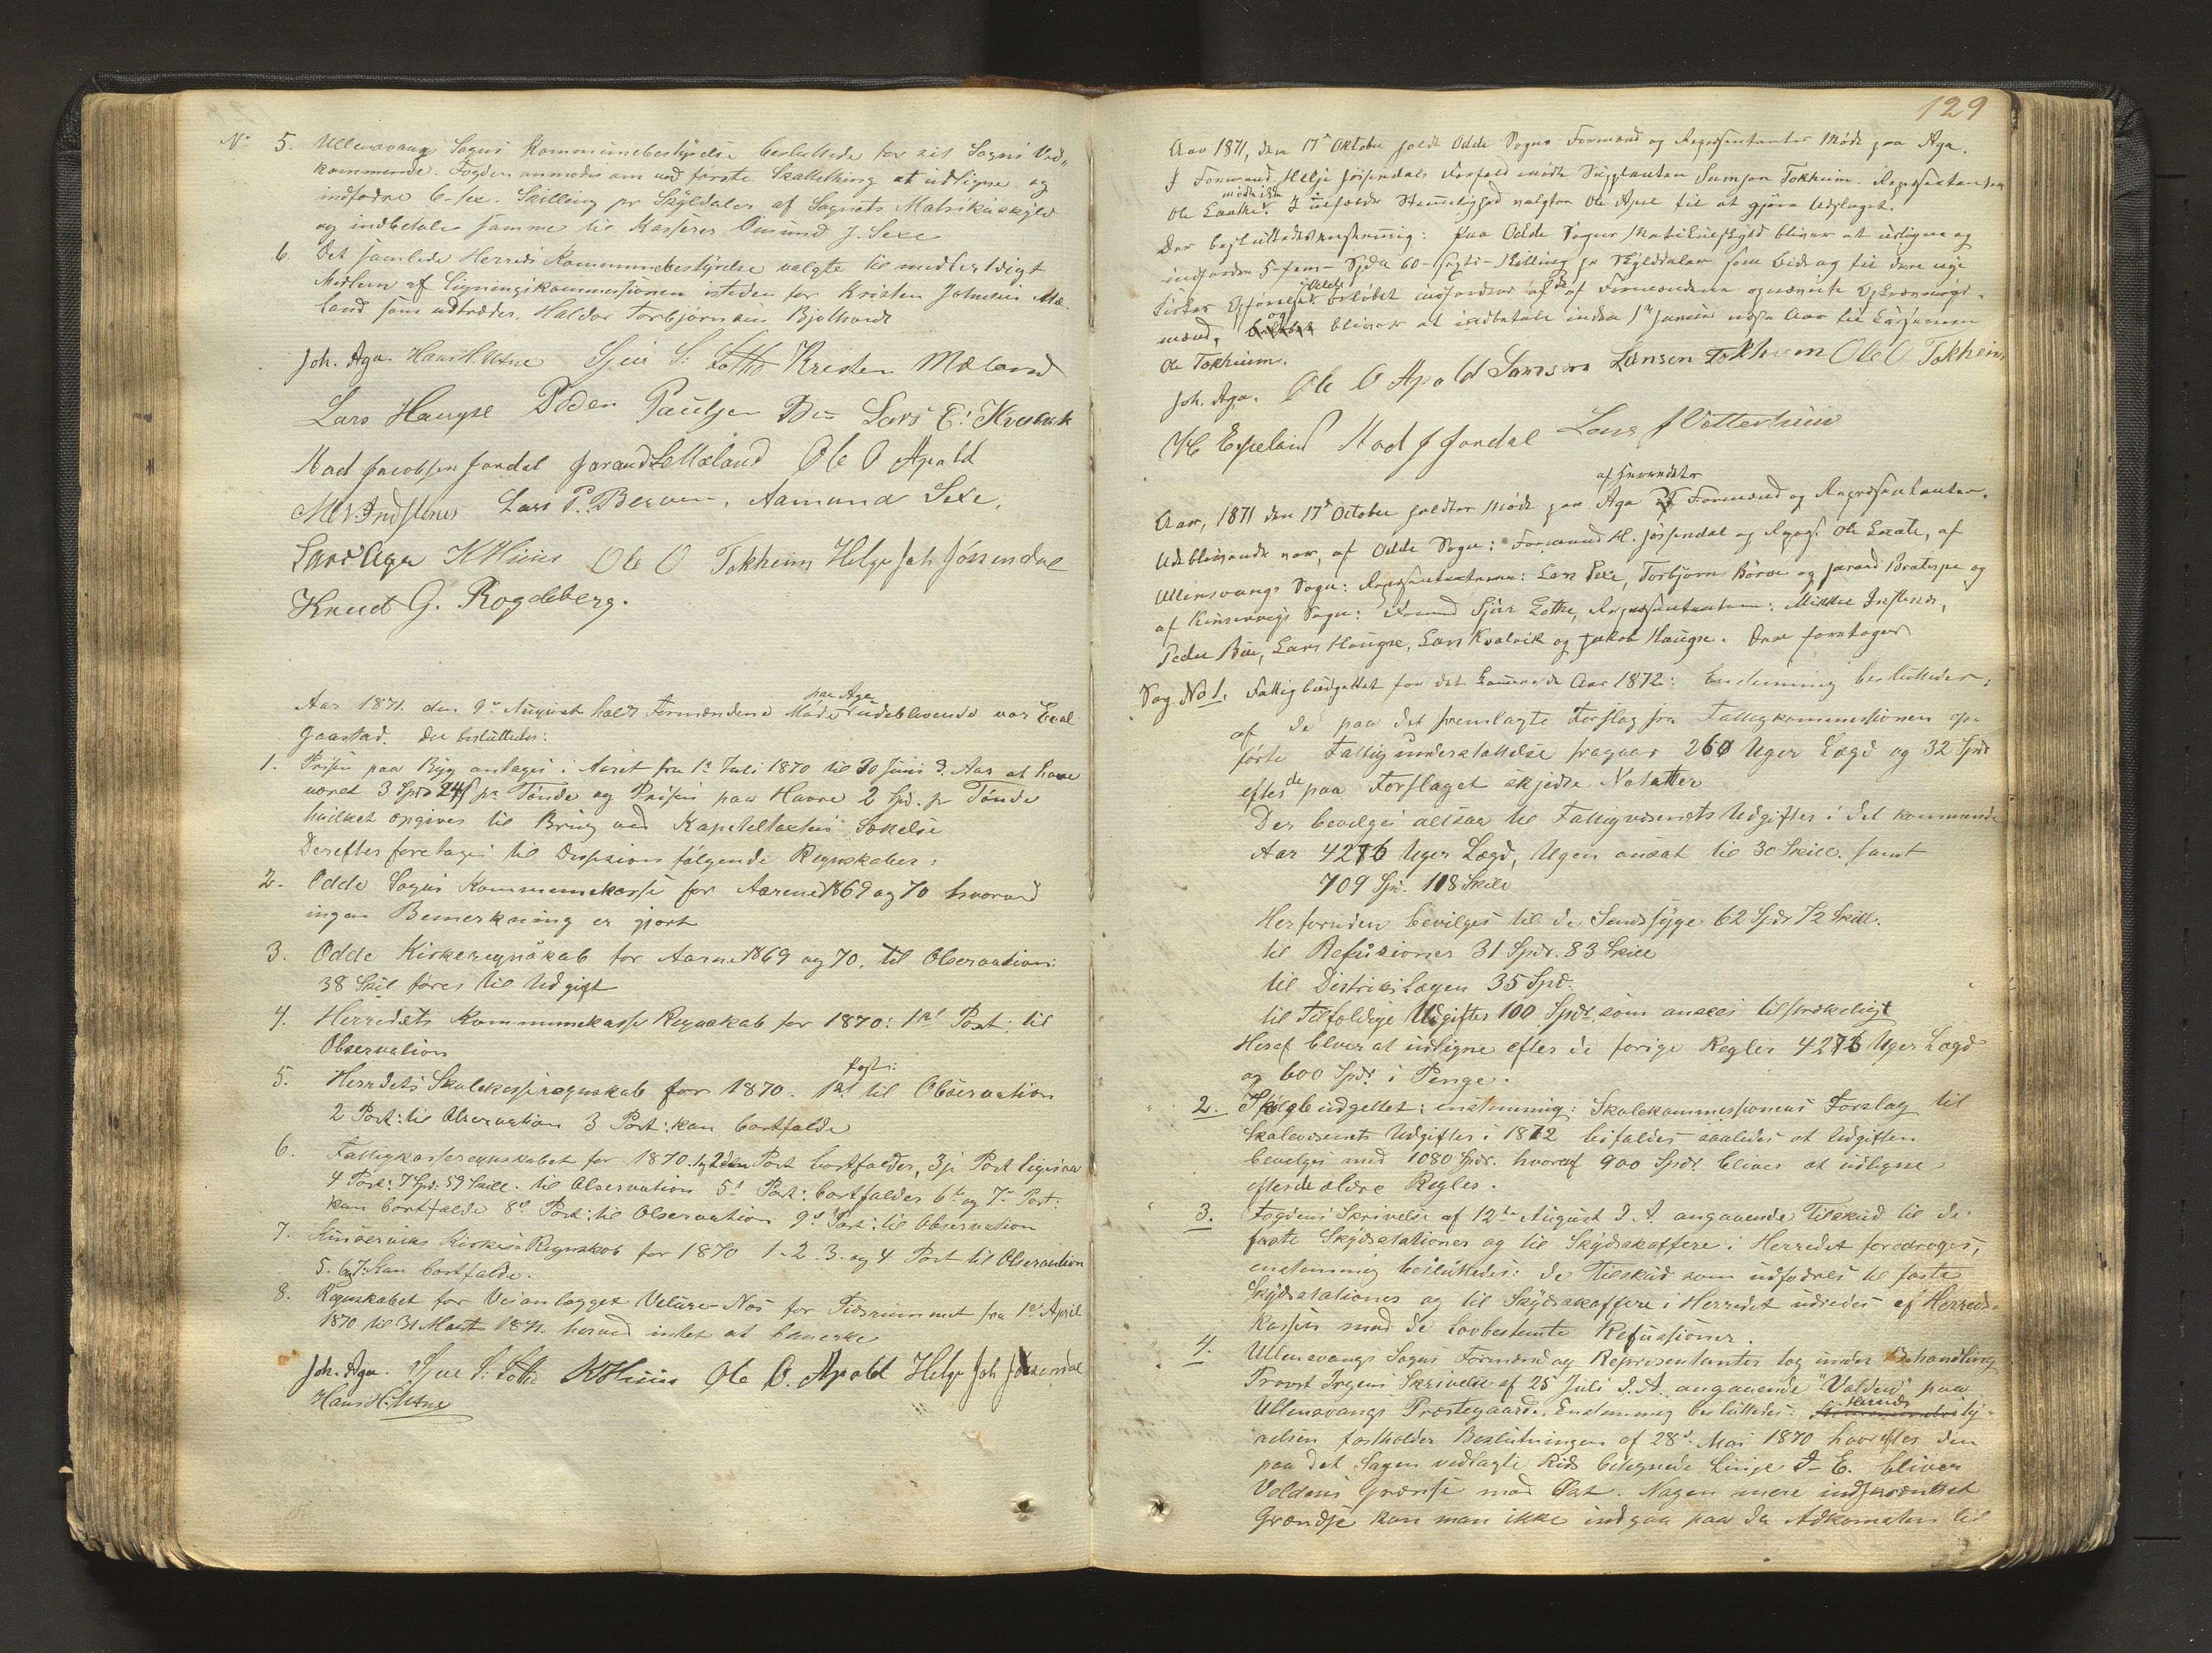 No 5. Ullensvangs Sogns Kommunebestyrelse besluttede for sit Sogns Ved-
kommende. Fogden anmodes om ved første Skattething at udligne og
indfodre 6-sex- Skilling pr Skylddaler af Sognets Matrikulskyld
og indbetale samme til Kasserer Omund J. Sexe
6. Det samlede Herreds Kommunebestyrelse valgte til midlertidigt
Medlem af Ligningskommissionen isteden for Kristen Johnsen Mæ-
land som udtræder, Haldor Torbjørnsen Bjotveit
Joh. Aga. Hans H. Utne Sjur S. Lothe Kristen Mæland
Lars Haugse Peder Paulsen Bu Lars E. Kvalvik
Mad Jacobsen Jordal Jorand L Mæland Ole O Apald
M. V. Indstenes Lars P. Berven, Aamund Sexe,
Lars Aga K Huus Ole O Tokheim Helge Joh Jøsendal
Knud G. Rogdeberg.
Aar 1871. den 9de August holdt Formændene Møde paa Aga udeblivende var Eval
Gaastad. Der besluttedes:
1. Prisen paa Byg antages i Aaret fra 1ste Juli 1870 til 30 Juni d. Aar at have
været 3 Spd 24 s pr Tønde og Prisen paa Havre 2 Spd. pr Tønde
hvilket opgives til Brug ved Kapiteltaxtens Sættelse
Derefter foretoges til Decision følgende Regnskaber:
2. Odde Sogns Kommunekasse for Aarene 1869 og 70 hvorved
ingen Bemerkning er gjort
3. Odde Kirkeregnskab for Aarene 1869 og 70. til Observation:
38 Skil føres til Udgift
4. Herredets Kommunekasse Regnskab for 1870: 1ste Post: til
Observation
5. Herredets Skolekasseregnskab for 1870. 1ste Post: til Observation
2 Post: til Observation 3 Post: kan bortfalde
6. Fattigkasseregnskabet for 1870. 1 og 2den Post bortfalder, 3je Post ligesaa
4 Post: 7 Spd: 59 Skill. til Observation 5te Post: bortfalder 6te og 7de Post:
kan bortfalde 8de Post: til Observation 9de Post: til Observation
7. Kinserviks Kirkes Regnskab for 1870 1-2-3- og 4 Post til Observation
5. 6 og 7: kan bortfalde.
8. Regnskabet for Veianlægget Velure-Nos for Tidsrummet fra 1ste April
1870 til 31 Marts 1871. herved intet at bemerke
Joh. Aga. Sjur S. Lothe K Huus Ole O. Apald Helge Joh Jøsendal
Hans H. Utne
129
Aar 1871, den 17de Oktober holdt Odde Sogns Formænd og Repræsentanter Møde paa Aga.
I Formand Helge Jøsendals Forfald mødte Suppleanten Samson Tokheim. Repræsentanten
Ole Eraathe mødte ikke. I Stemmelighed valgtes Ole Apal til at gjøre Udslaget.
Der besluttedes enstemmig: Paa Odde Sogns Matrikulskyld bliver at udligne og
indfordre 5-fem- Spd 60-sexti-Skilling pr Skylddaler som Bidrag til den nye
Kirkes Opførelse. Beløbet indfordres af de af Formændene opnævnte Opkrævnings-
mænd, og bliver at indbetale inden 1ste Januar næste Aar til Kassereren
Ole Tokheim.
Joh. Aga. Ole O Apald Samson Larsen Tokheim Ole O Tokheim
H Espeland Mad J Jordal Lars J Vetterhuus
Aar, 1871 den 17de October holdtes Møde paa Aga af Herredets Formænd og Repræsentanter.
Udeblivende var, af Odde Sogn: Formand H. Jøsendal og Repræs. Ole Eraate, af
Ullensvangs Sogn: Repræsentanterne: Lars Sexe, Torbjørn Børve og Jorand Bratespe og
af Kinserviks Sogn: Formand Sjur Lothe, Repræsentanterne: Mikkel Instenes,
Peder Bu, Lars Haugse, Lars Kvalvik og Jakob Haugse. Der foretoges
Sag No 1. Fattigbudgettet for det kommende Aar 1872: Enstemmig besluttedes:
af de paa det fremlagte Forslag fra Fattigkommissionen op-
førte Fattigunderstøttelse fragaar 260 Uger Lægd og 32 Spdr
efter de paa Forslaget skjedte Notatter
Der bevilges altsaa til Fattigvæsenets Udgifter i det kommende
Aar 4276 Uger Lægd, Ugen ansat til 30 Skill. samt
709 Spd. 118 Skill
Herforuden bevilges til de Sindssyge 62 Spdr 72 Skill.
til Refusioner 31 Spdr. 83 Skill
til Districtslægen 35 Spd.
til Tilfældige Udgifter 100 Spdr. som ansees tilstrækkeligt
Heraf bliver at udligne efter de forige Regler 4276 Uger Lægd
og 600 Spdr. i Penge.
2. Skolebudgettet: enstemmig: Skolekommissionens Forslag til
Skolevæsenets Udgifter i 1872 bifaldes saaledes at Udgiften
bevilges med 1080 Spdr. hvoraf 900 Spdr. bliver at udligne
efter de ældre Regler.
3. Fogdens Skrivelse af 12te August d. A. angaaende Tilskud til de
faste Skydsstationer og til Skydsskaffere i Herredet foredroges,
enstemmig besluttedes: de Tilskud som udfodres til faste
Skydsstationer og til Skydsskaffere i Herredet udredes af Herreds-
kassen med de lovbestemte Refusioner.
4. Ullensvangs Sogns Formænd og Repræsentanter tog under Behandling
Provst Irgens Skrivelse af 25 Juli d. A. angaaende "Volden" paa
Ullensvangs Præstegaard. Enstemmig besluttedes: Herredssty-
relsen fastholder Beslutningen af 28de Mai 1870 hvorefter den
paa det Sagen vedlagte Rids betegnede Linje D-E. bliver
Voldens Grændse mod Øst. Nogen mere indskrænket
Grændse kan man ikke indgaa paa da Adkomsten til